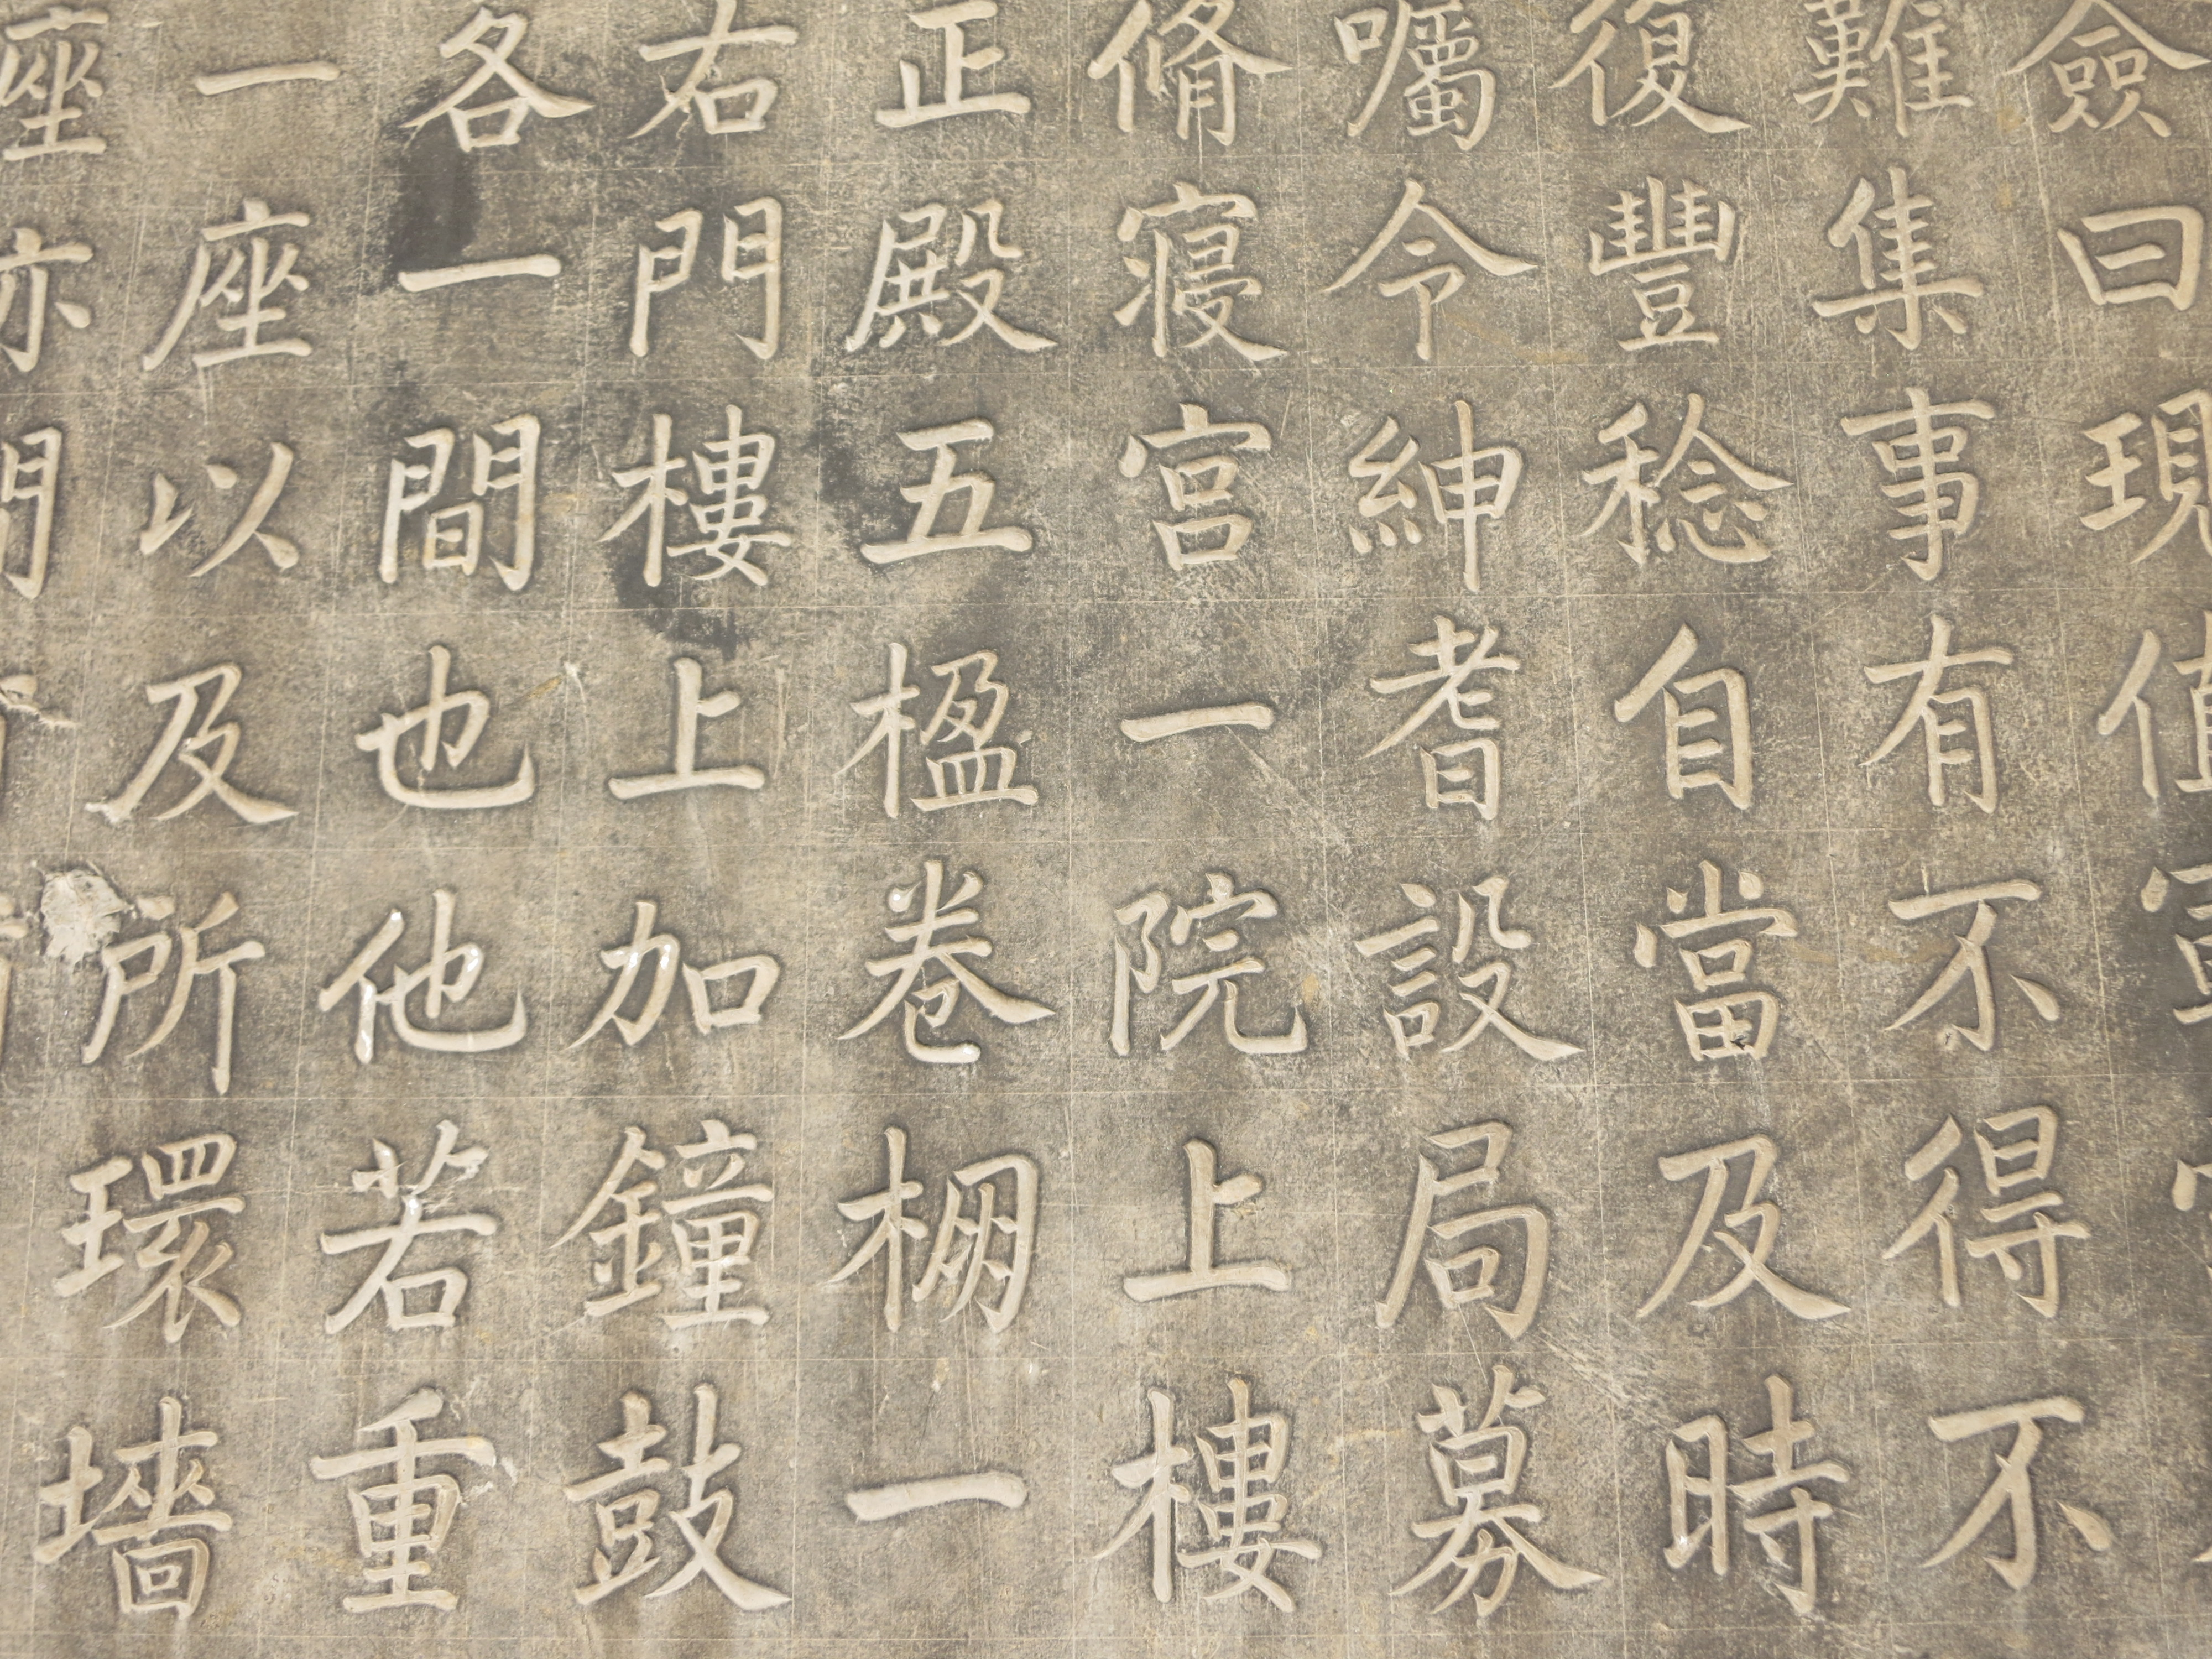 僉曰現值
難集事有不得不
復豐稔自當及時
囑令紳耆設局募
脩寢宮一院上樓
正殿五楹卷棚一
右門樓上加鐘鼓
各一間也他若重
一座以及所環墻
座亦門